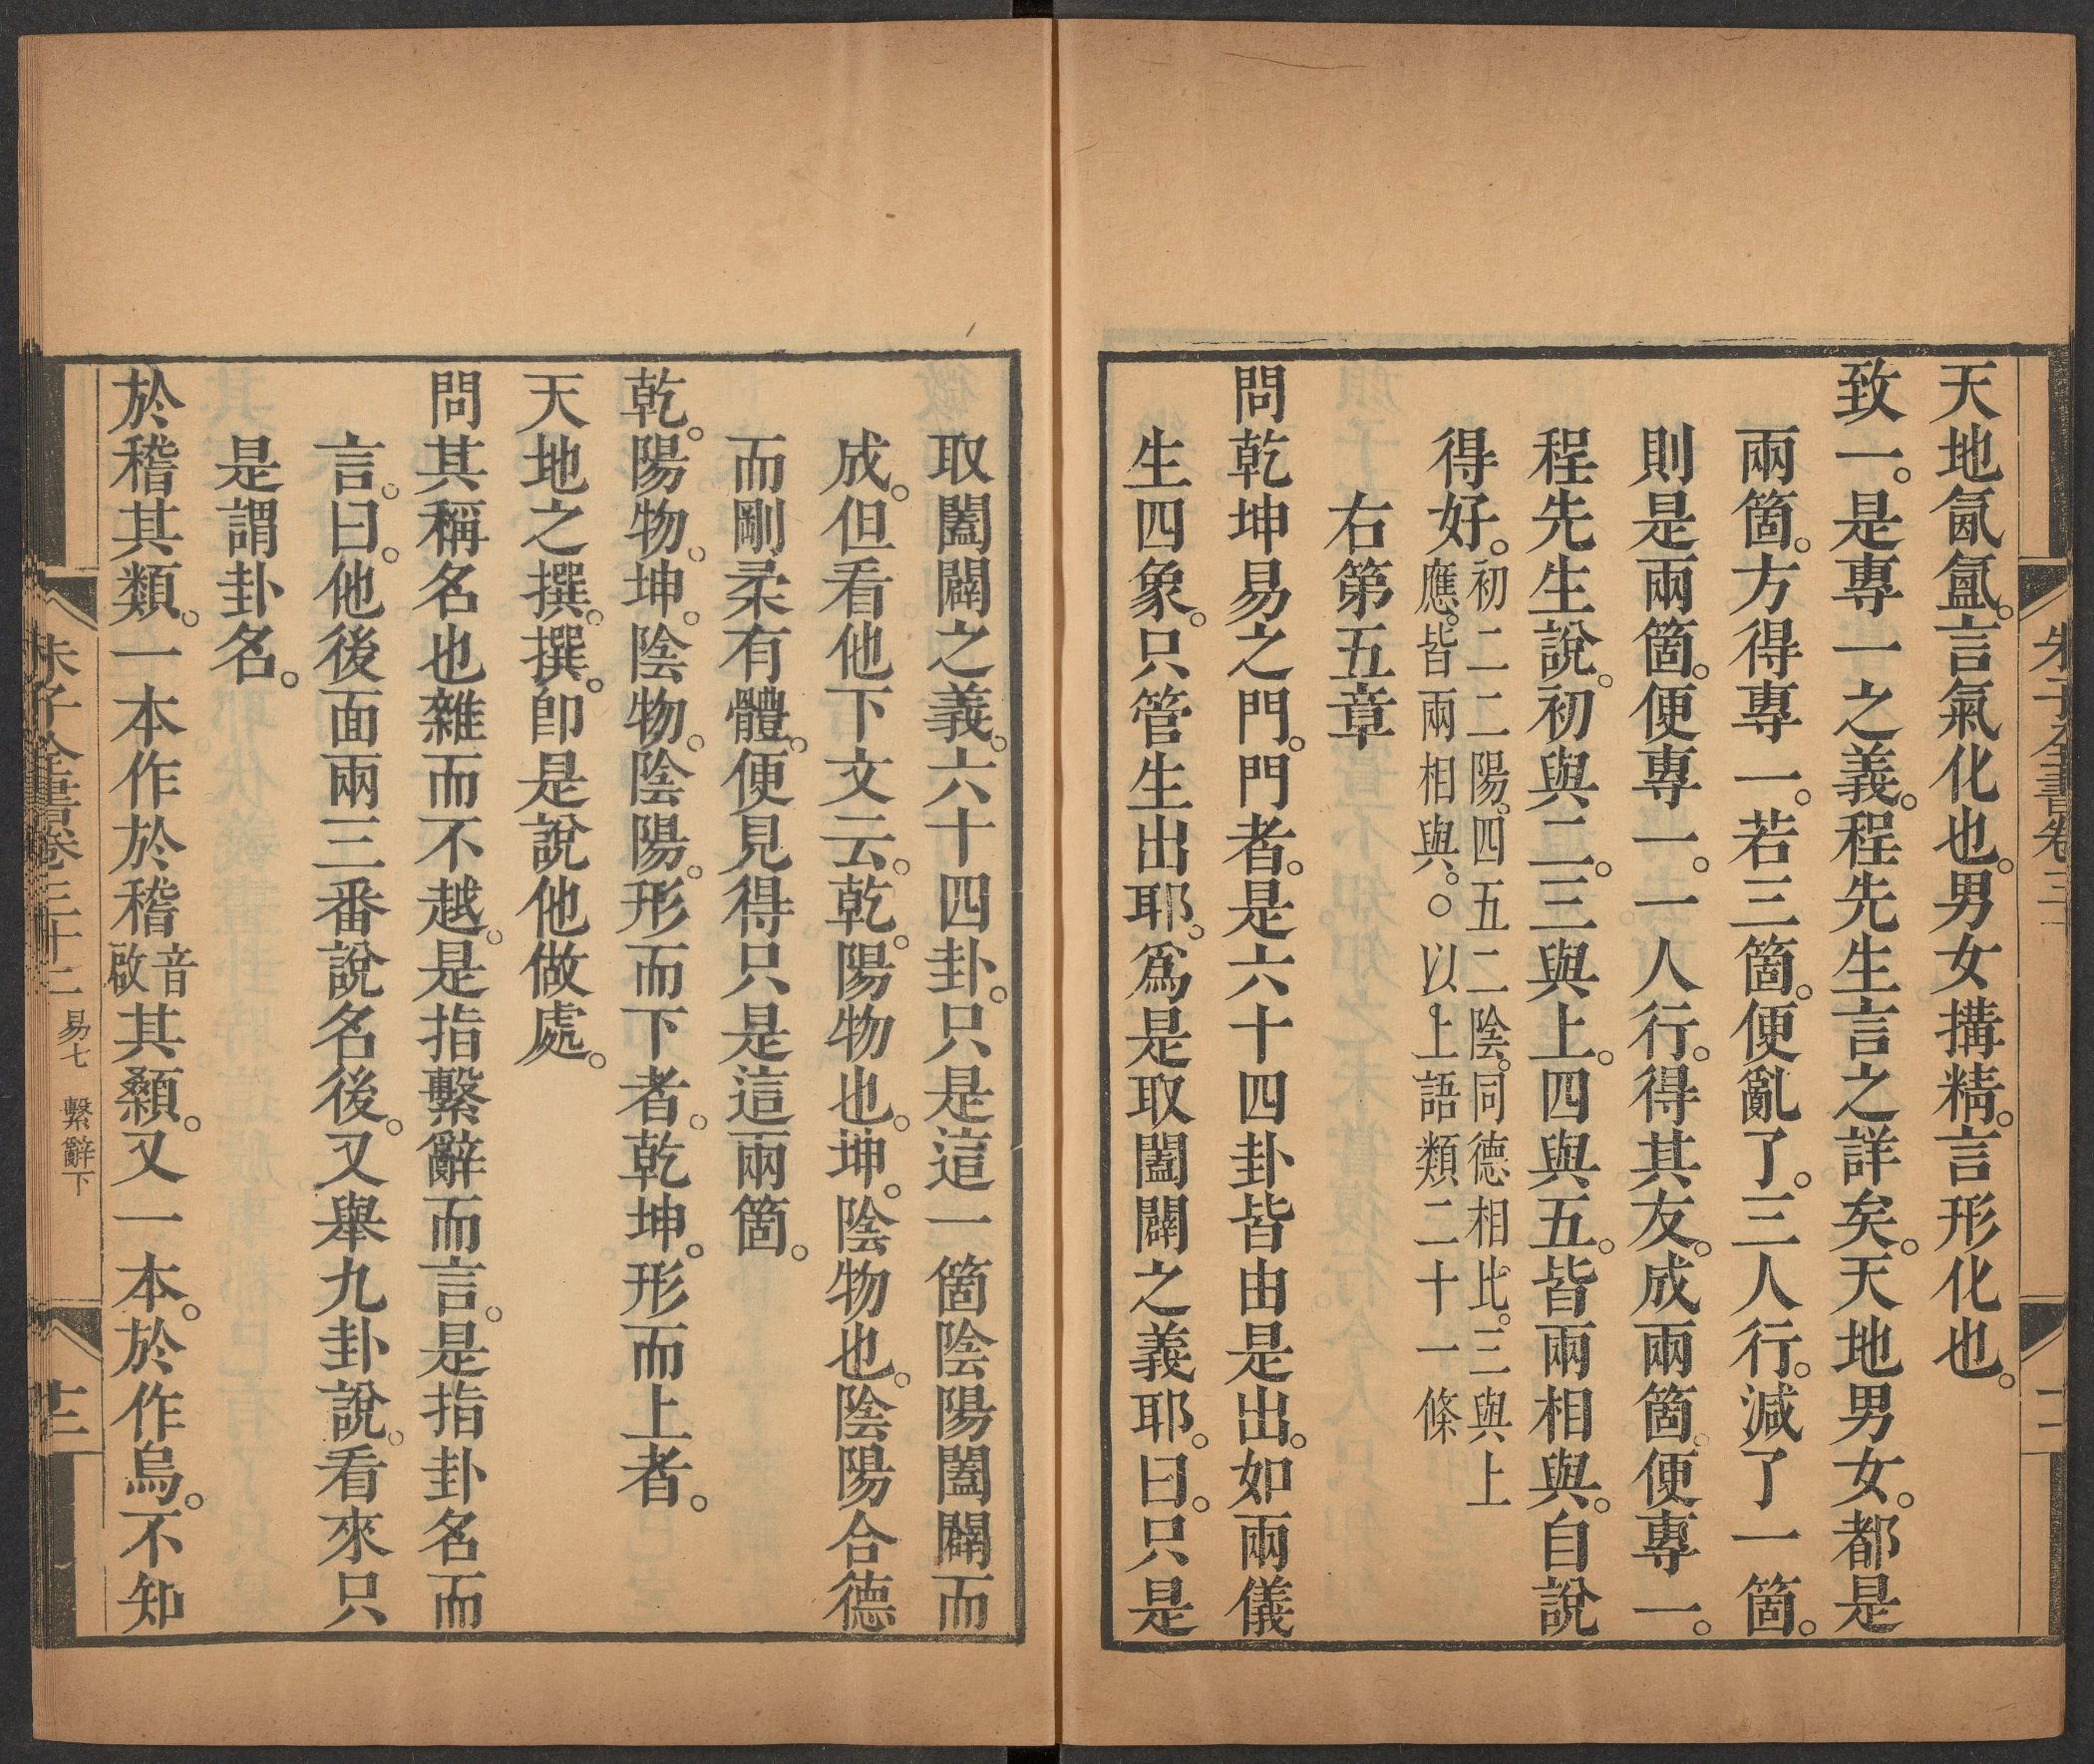 天地氤氳。言氣化也。男女搆精。言形化也。
致一。是專一之義。程先生言之詳矣。天地男女。都是
兩箇。方得專一。若三箇。便亂了。三人行。減了一箇。
則是兩箇。便專一。一人行。得其友。成兩箇。便專一。
程先生說。初與二。三與上。四與五。皆兩相與。自說
得好。初二二陽。四五二陰。同德相比。三與上
應。皆兩相與。○以上語類二十一條
右第五章
問乾坤易之門。門者。是六十四卦皆由是出。如兩儀
生四象。只管生出耶。爲是取闔闢之義耶。曰。只是
取闔闢之義。六十四卦。只是這一箇陰陽闔闢而
成。但看他下文云。乾。陽物也。坤。陰物也。陰陽合德
而剛柔有體。便見得只是這兩箇。
乾。陽物。坤。陰物。陰陽。形而下者。乾坤。形而上者。
天地之撰。撰。卽是說他做處。
問其稱名也雜而不越。是指繫辭而言。是指卦名而
言。曰。他後面兩三番說名後。又舉九卦說。看來只
是謂卦名。
於稽其類。一本作於稽音啟其顙。又一本。於作烏。不知
朱子全書卷三十二 易七 繫辭下